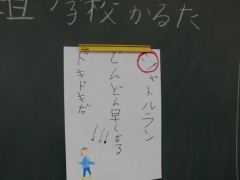 学校かるた
シャトルラン
どんどん早くなる
ドキドキだ